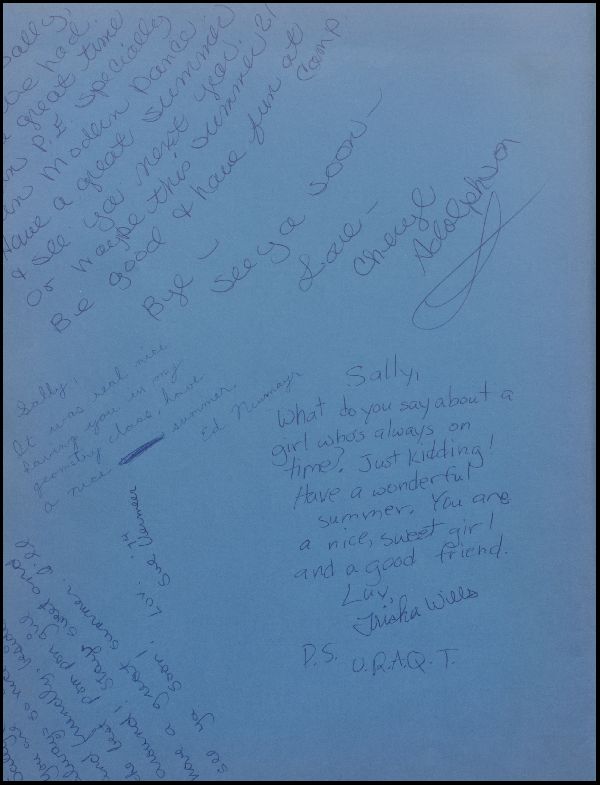 Sally,
we had
a great time
in P.E. specially
in Modern Dance.
Have a great summer
& see ya next year.
Or maybe this summer &
Be good & have fun at
camp
Bye - See ya soon -
Love -
Cheryl
Adolphson
Sally,
It was real nice
having you in my
geometry class, have
a nice summer.
Ed
Sally,
What do you say about a
girl who's always on
time? Just kidding!
Have a wonderful
summer. You are
a nice, sweet girl
and a good friend.
Luv,
Trisha Wills
P.S. U.R.A.Q.T.
Sally
You are so nice
always
and friendly,
the best pom pon girl
around! Stay sweet and
have a great summer. I'll
see ya soon! Luv, Ya
Sue